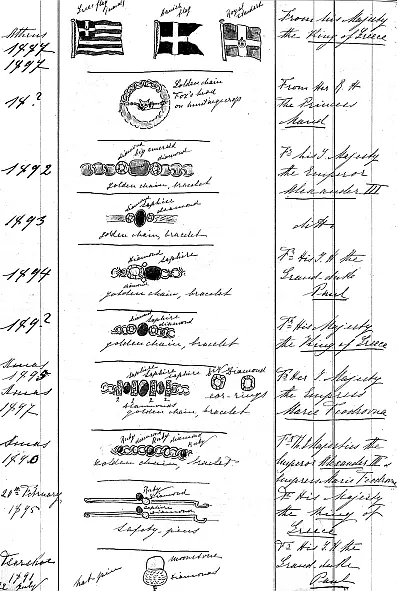 Greek flag
Danish flag
Royal Standard
Athens
1887
1897
From his Majesty
the King of Greece
18?
Golden chain
Fox's head
on hunting crop
From Her R H
The Princess
Maud
1892
diamond big emerald
diamond
golden chain, bracelet
Fr his I. Majesty
the Emperor
Alexander III
1893
Saphire
diamond
golden chain, bracelet
ditto
1894
diamond saphire
diamond
golden chain, bracelet
Fr His I. H the
Grand duke
Paul
189?
saphire
diamond
golden chain, bracelet
Fr His Majesty
the King of Greece
Xmas
1895
Xmas
1897
saphire
diamonds
golden chain, bracelet
Diamond
ear-rings
Fr Her I. Majesty
the Empress
Marie Feodrovna
Xmas
Ruby diamond Ruby diamond
Ruby
golden chain, bracelet
the
Emperor Alexander III &
Empress Marie Feodrovna
20th February
1895
Ruby
Diamond
Saphire
diamond
Safety-pins
Fr His Majesty
the King of
Greece
1891
hat-pin
moonstone
diamonds
Fr His I. H the
Grand duke
Paul